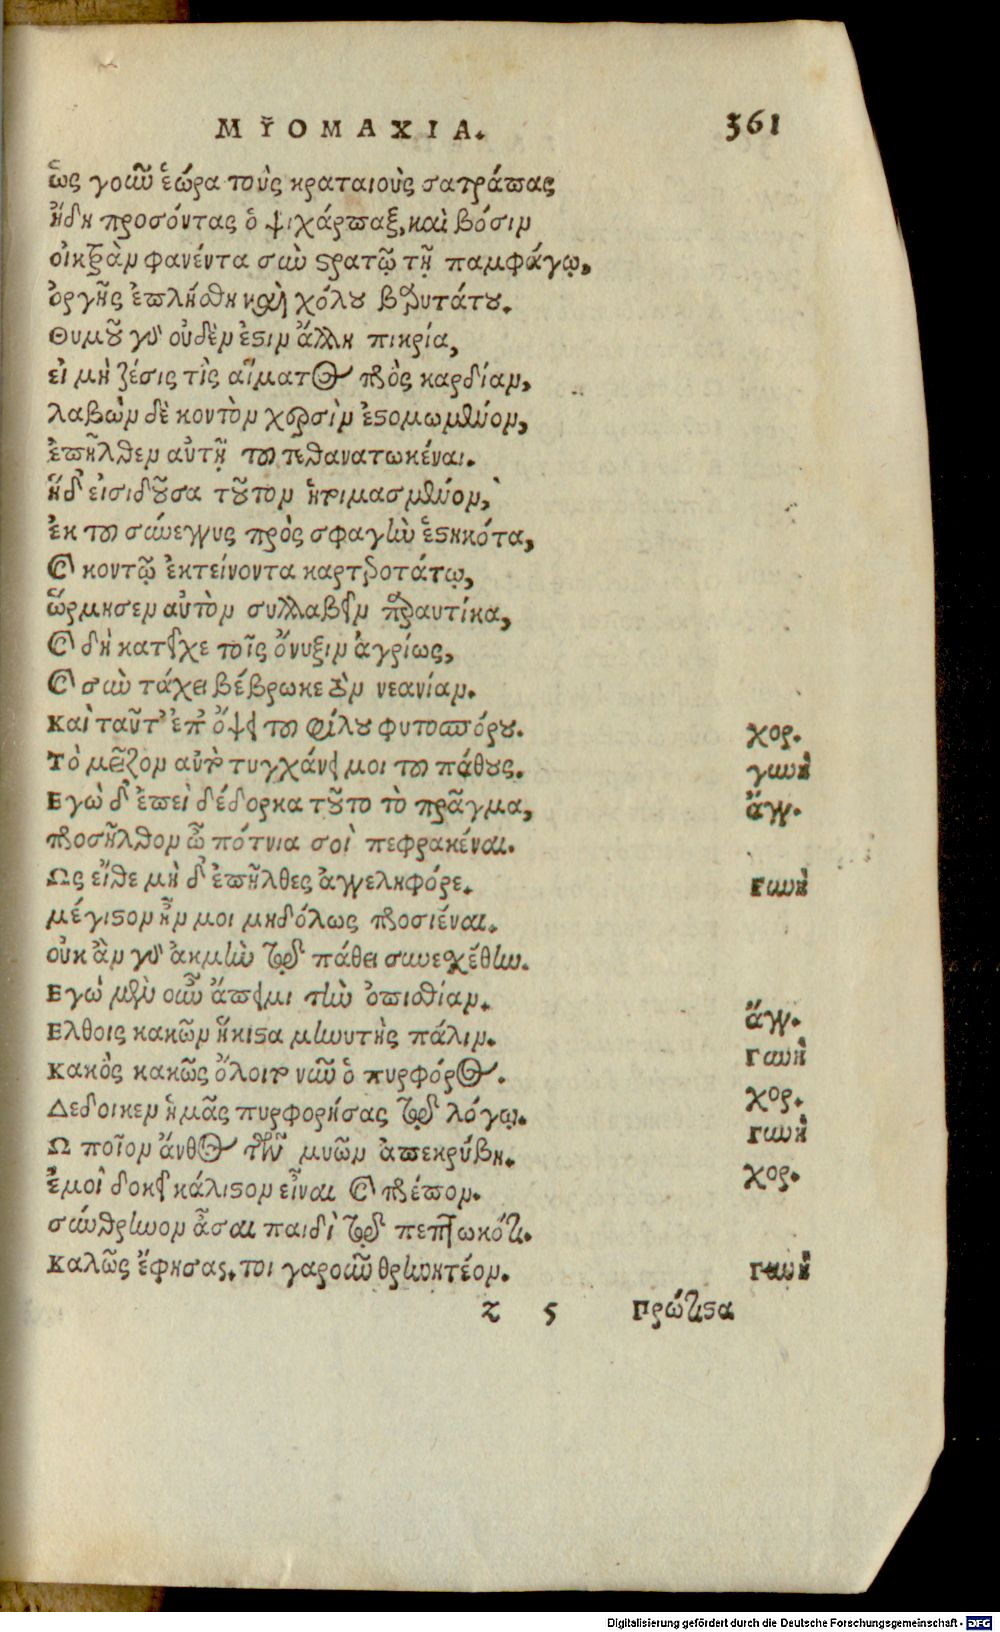 ΜΥΟΜΑΧΙΑ. 361
ὡς γοῦν ἑώρα τοὺς κραταιοὺς σατράπας
ἤδη προσόντας ὁ ψιχάρπαξ, καὶ βόσιν
οἰκτρὰν φανέντα σὺν στρατῷ τῇ παμφάγῳ,
ὀργῆς ἐπλήσθη καὶ χόλου βαρυτάτου.
Θυμοῦ γὰρ οὐδὲν ἐστιν ἄλλη πικρία,
εἰ μὴ ζέσις τὶς αἵματος πρὸς καρδίαν,
λαβὼν δὲ κοντὸν χερσὶν ἐστομωμένον,
ἐπῆλθεν αὐτῇ τοῦ τεθανατωκέναι.
ἥδ' εἰσιδοῦσα τοῦτον ἡτοιμασμένον,
ἐκ τοῦ σύνεγγυς πρὸς σφαγὴν ἑστηκότα,
καὶ κοντῷ ἐκτείνοντα καρτεροτάτῳ,
ὥρμησεν αὐτὸν συλλαβεῖν παραυτίκα,
καὶ δὴ κατεῖχε τοῖς ὄνυξιν ἀγρίως,
καὶ σὺν τάχει βέβρωκε τὸν νεανίαν.
Καὶ ταῦτ' ἐπ' ὄψει τοῦ φίλου φυτοσπόρου. χορ.
Τὸ μεῖζον αὐτὸ τυγχάνει μοι τοῦ πάθους. γυνὴ
Εγὼ δ' ἐπεὶ δέδορκα τοῦτο τὸ πρᾶγμα, ἄγγ.
προσῆλθον ὦ πότνια σοὶ πεφρακέναι.
Ως εἴθε μὴ δ' ἐπῆλθες ἀγγεληφόρε. Γυνὴ
μέγιστον ἦν μοι μηδόλως προσιέναι.
οὐκ ἂν γὰρ ἀκμὴν τῷδε πάθει συνεσχέθην.
Εγὼ μὲν οὖν ἄπειμι τὴν ὀπισθίαν. ἄγγ.
Ελθοις κακῶν ἥκιστα μηνυτὴς πάλιν. Γυνὴ
Κακὸς κακῶς ὄλοιτο νῦν ὁ πυρφόρος. χορ.
Δεδοικεν ἡμᾶς πυρφορήσας τῷδε λόγῳ. Γυνὴ
Ω ποῖον ἄνθος τῶν μυῶν ἀπεκρύβη. χορ.
ἐμοὶ δοκεῖ κάλιστον εἶναι καὶ πρέπον.
σύνθρηνον ᾆσαι παιδὶ τῷδε πεπτωκότι.
Καλῶς ἔφησας. τοι γαροῦν θρηνητέον. Γυνὴ
z 5 Πρώτιστα
Digitalisierung gefördert durch die Deutsche Forschungsgemeinschaft - DFG